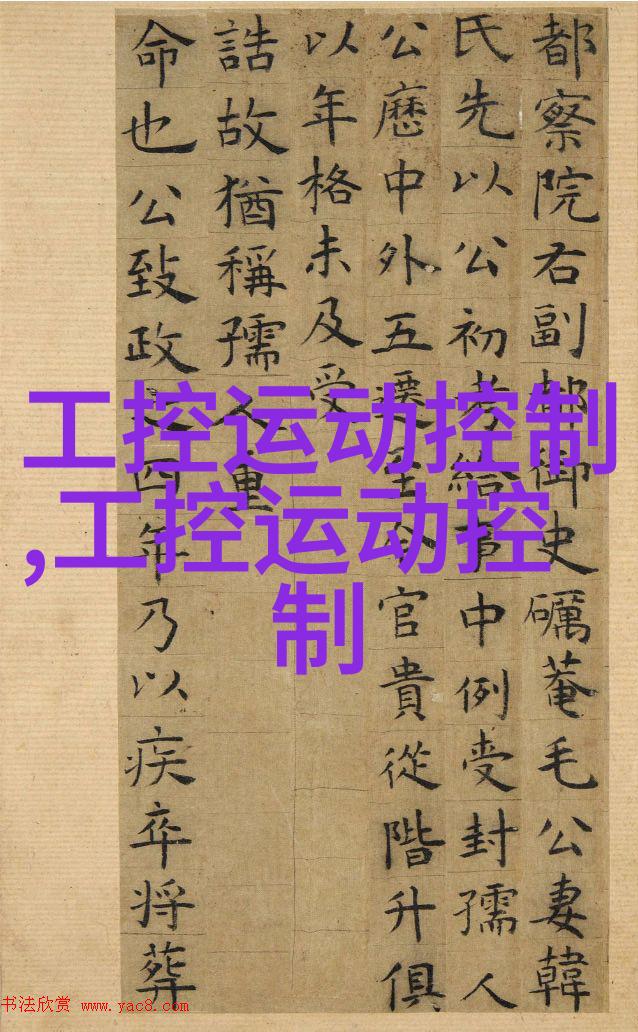 都察院右副都御史礪菴毛公妻韓
氏先以公初考給事中例受封孺人
公歷中外五遷至今官貴從階升俱
以年格未及受
誥故猶稱孺人重
命也公致政之四年乃以疾卒將葬
工控运动控制
,工控运动控
制
书法欣赏 www.yac8.com